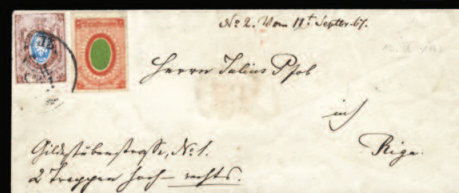 No 2. Vom 11t Septbr. 67.
Herrn Julius Pfob
in
Riga.
Gildstubenstraße, No 1.
2 Treppen hoch rechts.